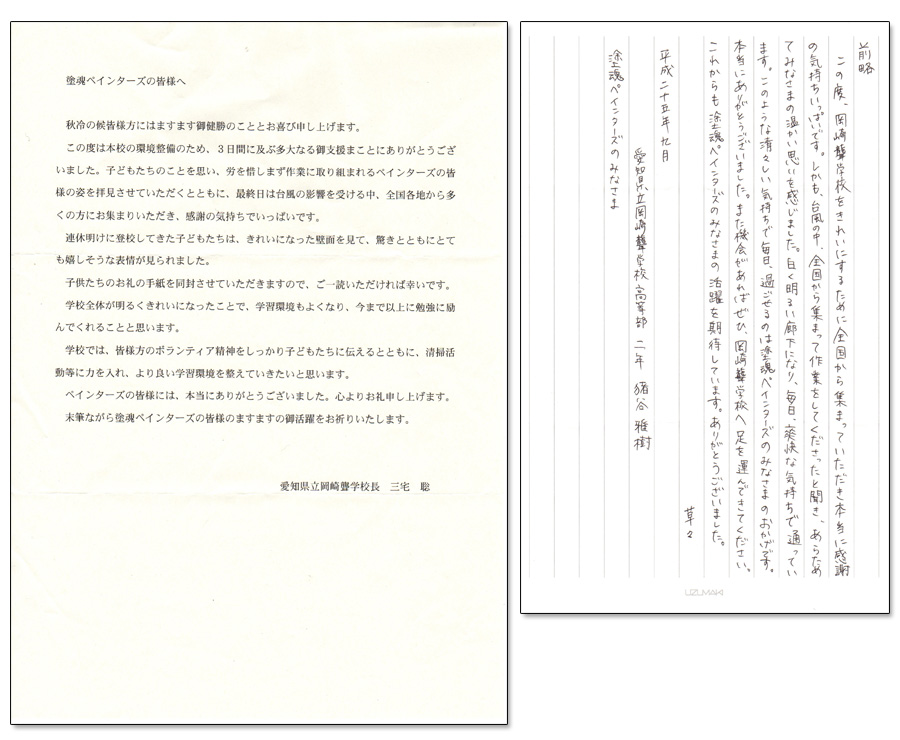 塗魂ペインターズの皆様へ
秋冷の候皆様方にはますます御健勝のこととお喜び申し上げます。
この度は本校の環境整備のため、３日間に及ぶ多大なる御支援まことにありがとうござ
いました。子どもたちのことを思い、労を惜しまず作業に取り組まれるペインターズの皆
様の姿を拝見させていただくとともに、最終日は台風の影響を受ける中、全国各地から多
くの方にお集まりいただき、感謝の気持ちでいっぱいです。
連休明けに登校してきた子どもたちは、きれいになった壁面を見て、驚きとともにとて
も嬉しそうな表情が見られました。
子供たちのお礼の手紙を同封させていただきますので、ご一読いただければ幸いです。
学校全体が明るくきれいになったことで、学習環境もよくなり、今まで以上に勉強に励
んでくれることと思います。
学校では、皆様方のボランティア精神をしっかり子どもたちに伝えるとともに、清掃活
動等に力を入れ、より良い学習環境を整えていきたいと思います。
ペインターズの皆様には、本当にありがとうございました。心よりお礼申し上げます。
末筆ながら塗魂ペインターズの皆様のますますの御活躍をお祈りいたします。
愛知県立岡崎聾学校長　三宅　聡
前略
この度、岡崎聾学校をきれいにするために全国から集まっていただき本当に感謝
の気持ちいっぱいです。しかも、台風の中、全国から集まって作業をしてくださったと聞き、あらため
てみなさまの温かい思いを感じました。白く明るい廊下になり、毎日、爽快な気持ちで通ってい
ます。このような清々しい気持ちで毎日、過ごせるのは塗魂ペインターズのみなさまのおかげです。
本当にありがとうございました。また機会があればぜひ、岡崎聾学校へ足を運んできてください。
これからも塗魂ペインターズのみなさまの活躍を期待しています。ありがとうございました。
草々
平成二十五年九月
愛知県立岡崎聾学校高等部　二年　猪谷雅樹
塗魂ペインターズのみなさま
UZUMAKI